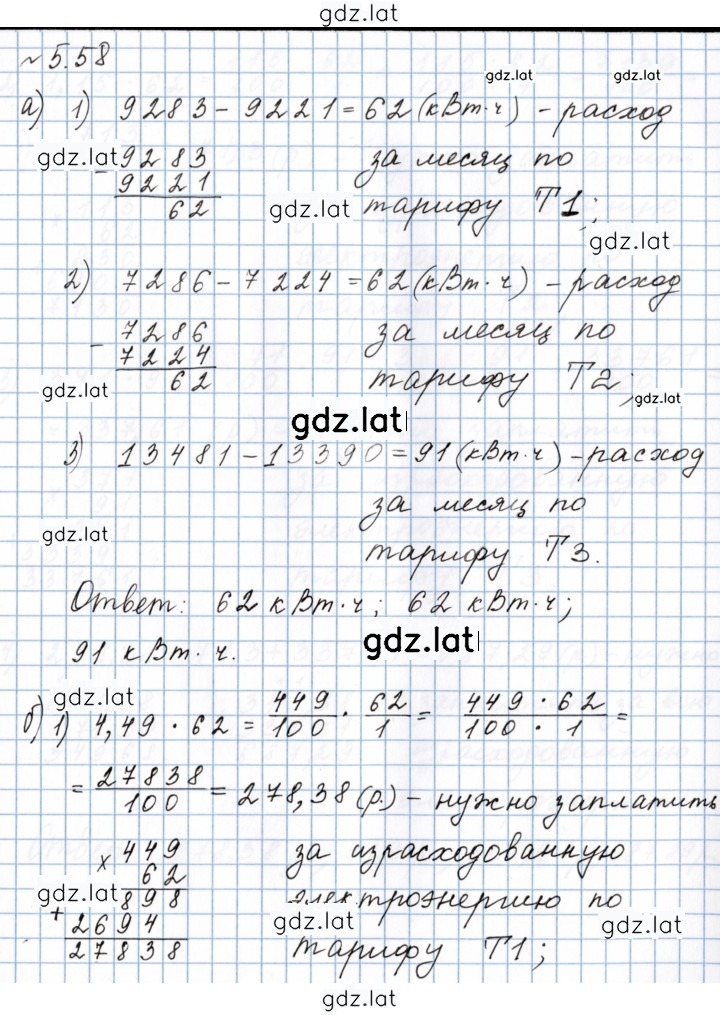 gdz.lat
№5.58
gdz.lat gdz.lat
а) 1) 9283 - 9221 = 62 (кВт·ч) - расход
gdz.lat - 9283 за месяц по
9221 тарифу Т1;
62 gdz.lat
gdz.lat
2) 7286 - 7224 = 62 (кВт·ч) - расход
- 7286 за месяц по
7224 тарифу Т2;
62
gdz.lat gdz.lat
gdz.lat
3) 13481 - 13390 = 91 (кВт·ч) - расход
за месяц по
gdz.lat
тарифу Т3.
Ответ: 62 кВт·ч; 62 кВт·ч;
gdz.lat
91 кВт·ч.
gdz.lat
б) 1) 4,49 · 62 = 449/100 · 62/1 = 449 · 62/100 · 1 =
= 27838/100 = 278,38 (р.) - нужно заплатить
× 449 за израсходованную
62
gdz.lat 898 электроэнергию по
+ 2694 gdz.lat gdz.lat
27838 тарифу Т1;
gdz.lat